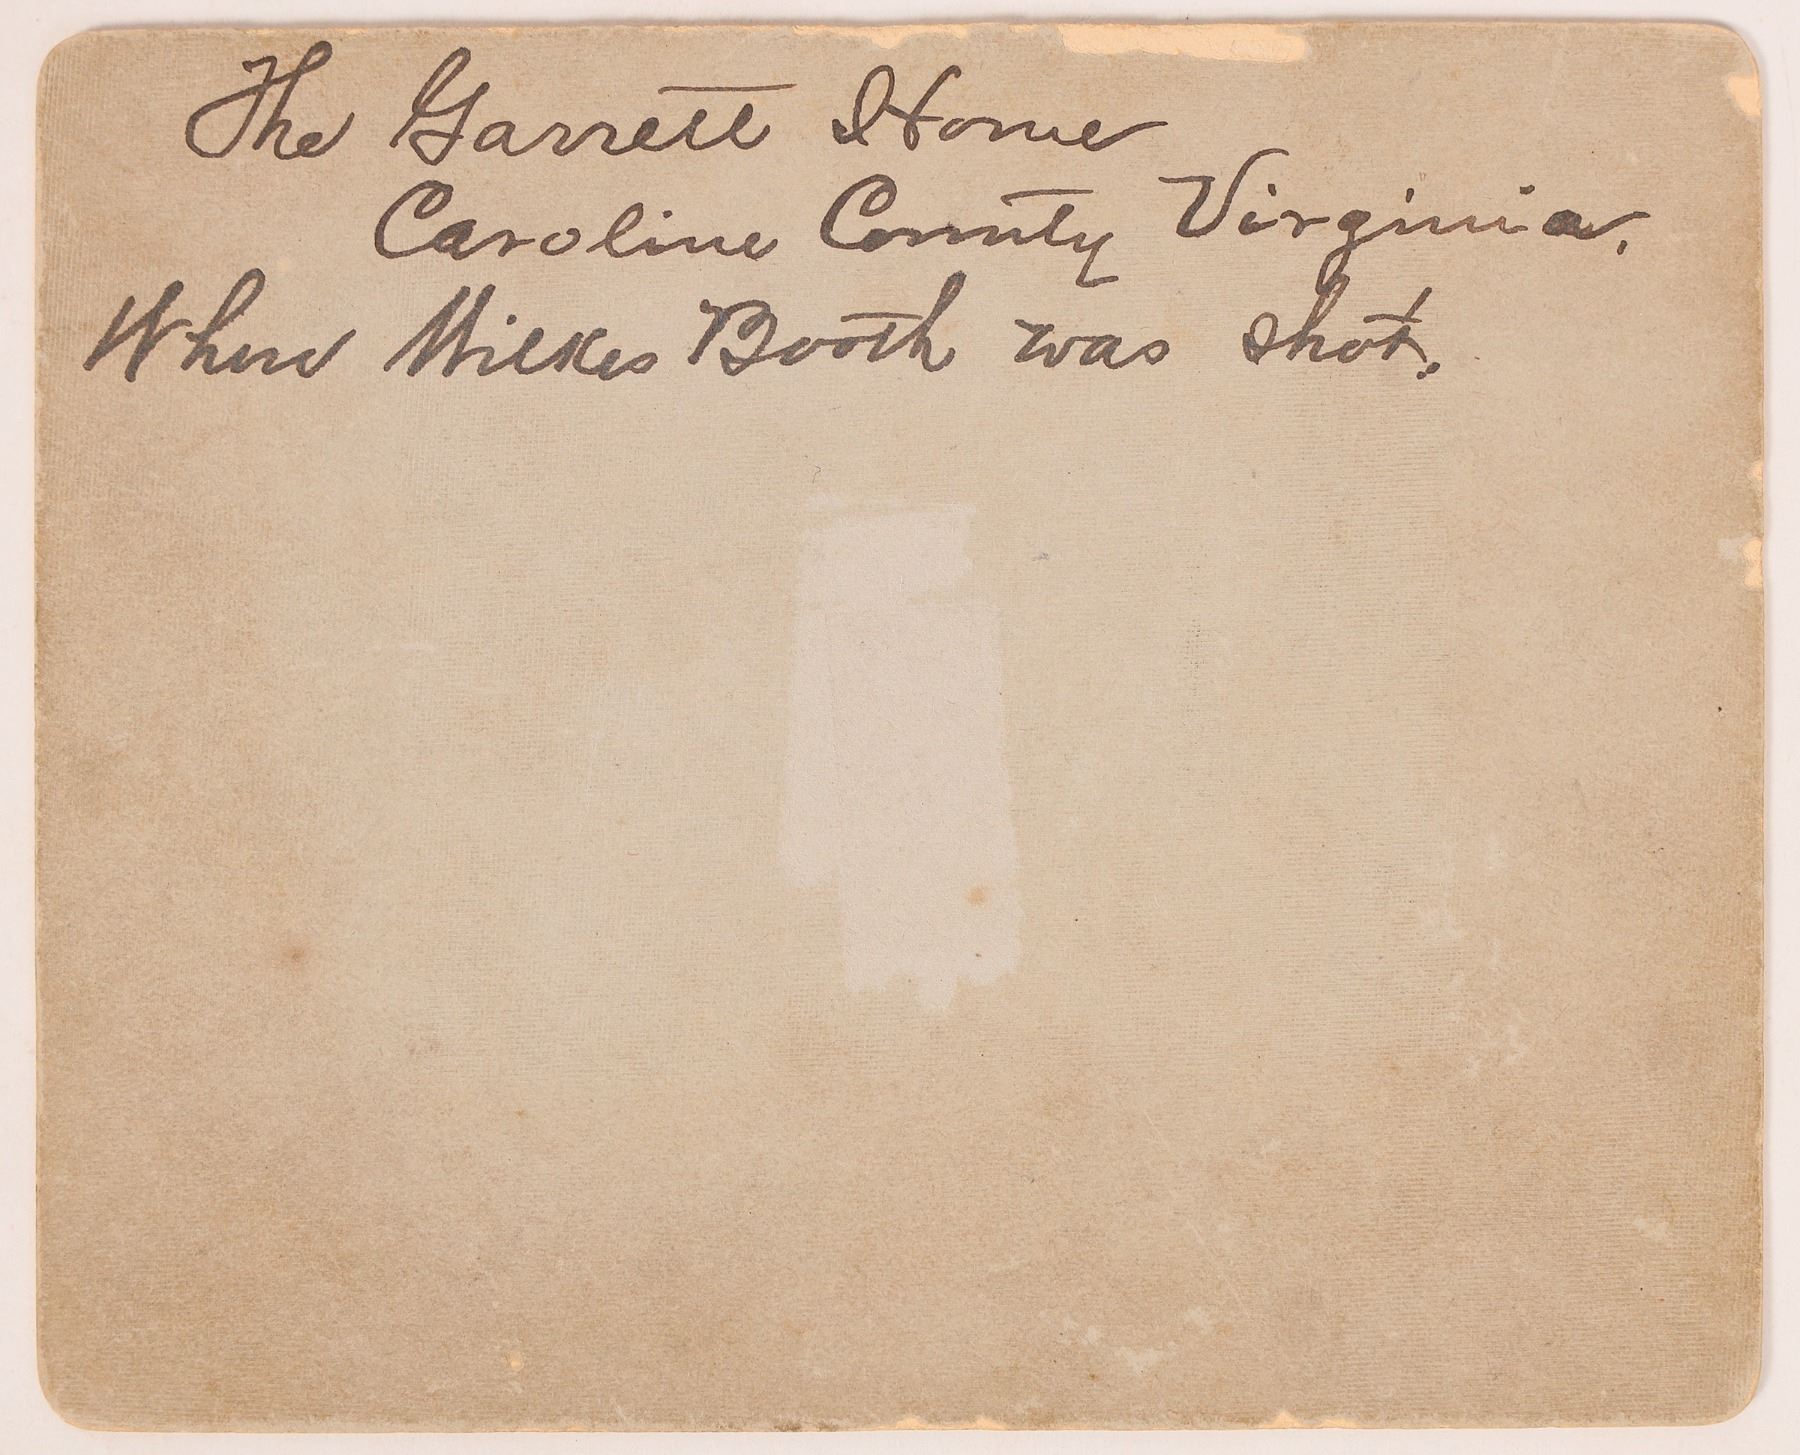 The Garrett Home
Caroline County Virginia.
Where Wilkes Booth was shot.